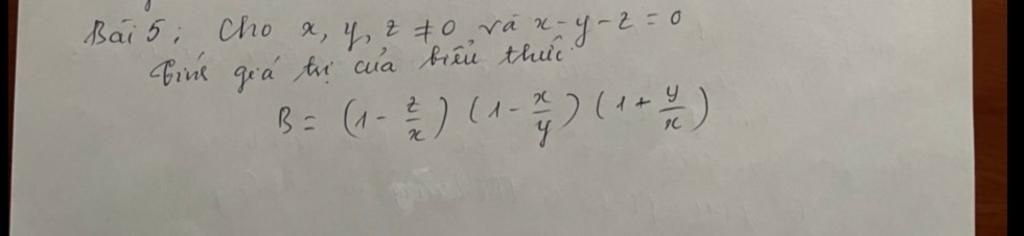 Bài 5: Cho x, y, z ≠ 0 và x - y - z = 0
Tính giá trị của biểu thức
B = (1 - z/x) (1 - x/y) (1 + y/x)